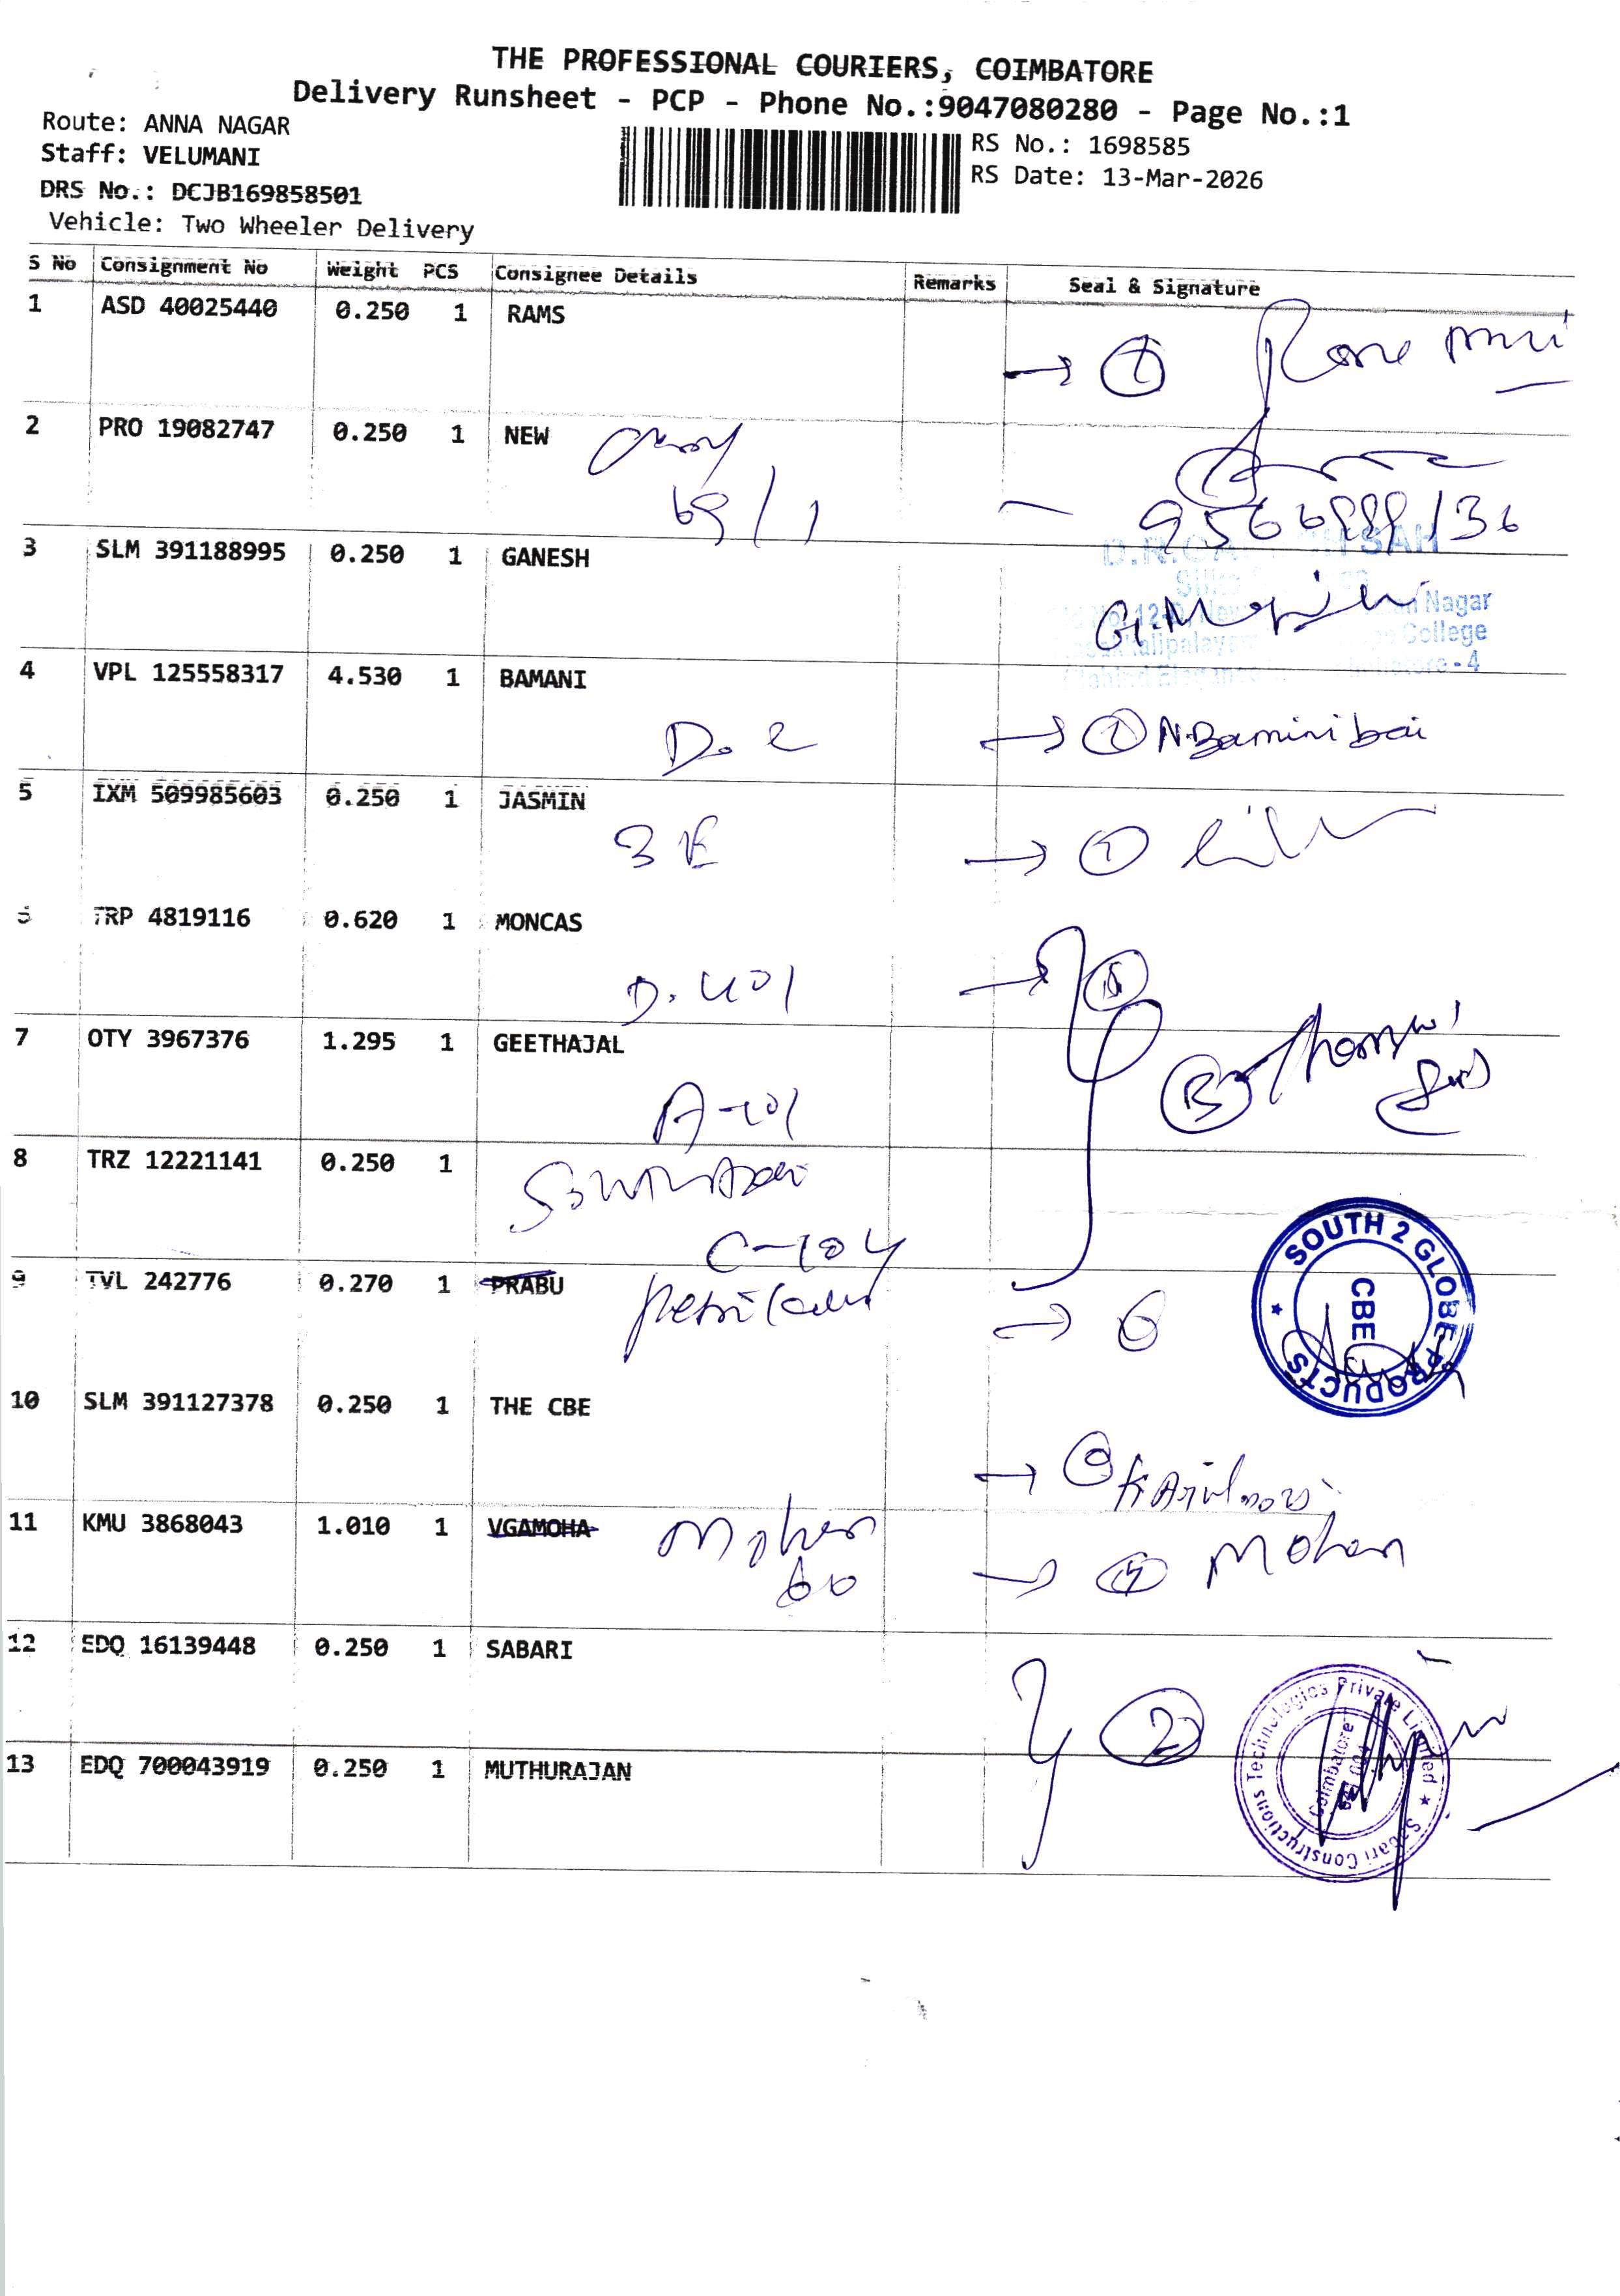 THE PROFESSIONAL COURIERS, COIMBATORE
Delivery Runsheet - PCP - Phone No.:9047080280 - Page No.:1
Route: ANNA NAGAR
Staff: VELUMANI
DRS No.: DCJB169858501
Vehicle: Two Wheeler Delivery
RS No.: 1698585
RS Date: 13-Mar-2026
S No Consignment No Weight PCS Consignee Details Remarks Seal & Signature
1 ASD 40025440 0.250 1 RAMS
2 PRO 19082747 0.250 1 NEW
69/1
3 SLM 391188995 0.250 1 GANESH
Nagar
College
- 4
4 VPL 125558317 4.530 1 BAMANI
→ 1 N.Baminibai
5 IXM 509985603 0.250 1 JASMIN
3 E → 1
TRP 4819116 0.620 1 MONCAS
D. 401 →
7 OTY 3967376 1.295 1 GEETHAJAL
A-101
8 TRZ 12221141 0.250 1
C-104
9 TVL 242776 0.270 1 PRABU
→ 6
SOUTH 2 GLOBE PRODUCTS
CBE
10 SLM 391127378 0.250 1 THE CBE
→
11 KMU 3868043 1.010 1 VGAMOHA Mohan
60 → Mohan
12 EDQ 16139448 0.250 1 SABARI
2
Sabari Constructions Technologies Private Limited
Coimbatore
13 EDQ 700043919 0.250 1 MUTHURAJAN